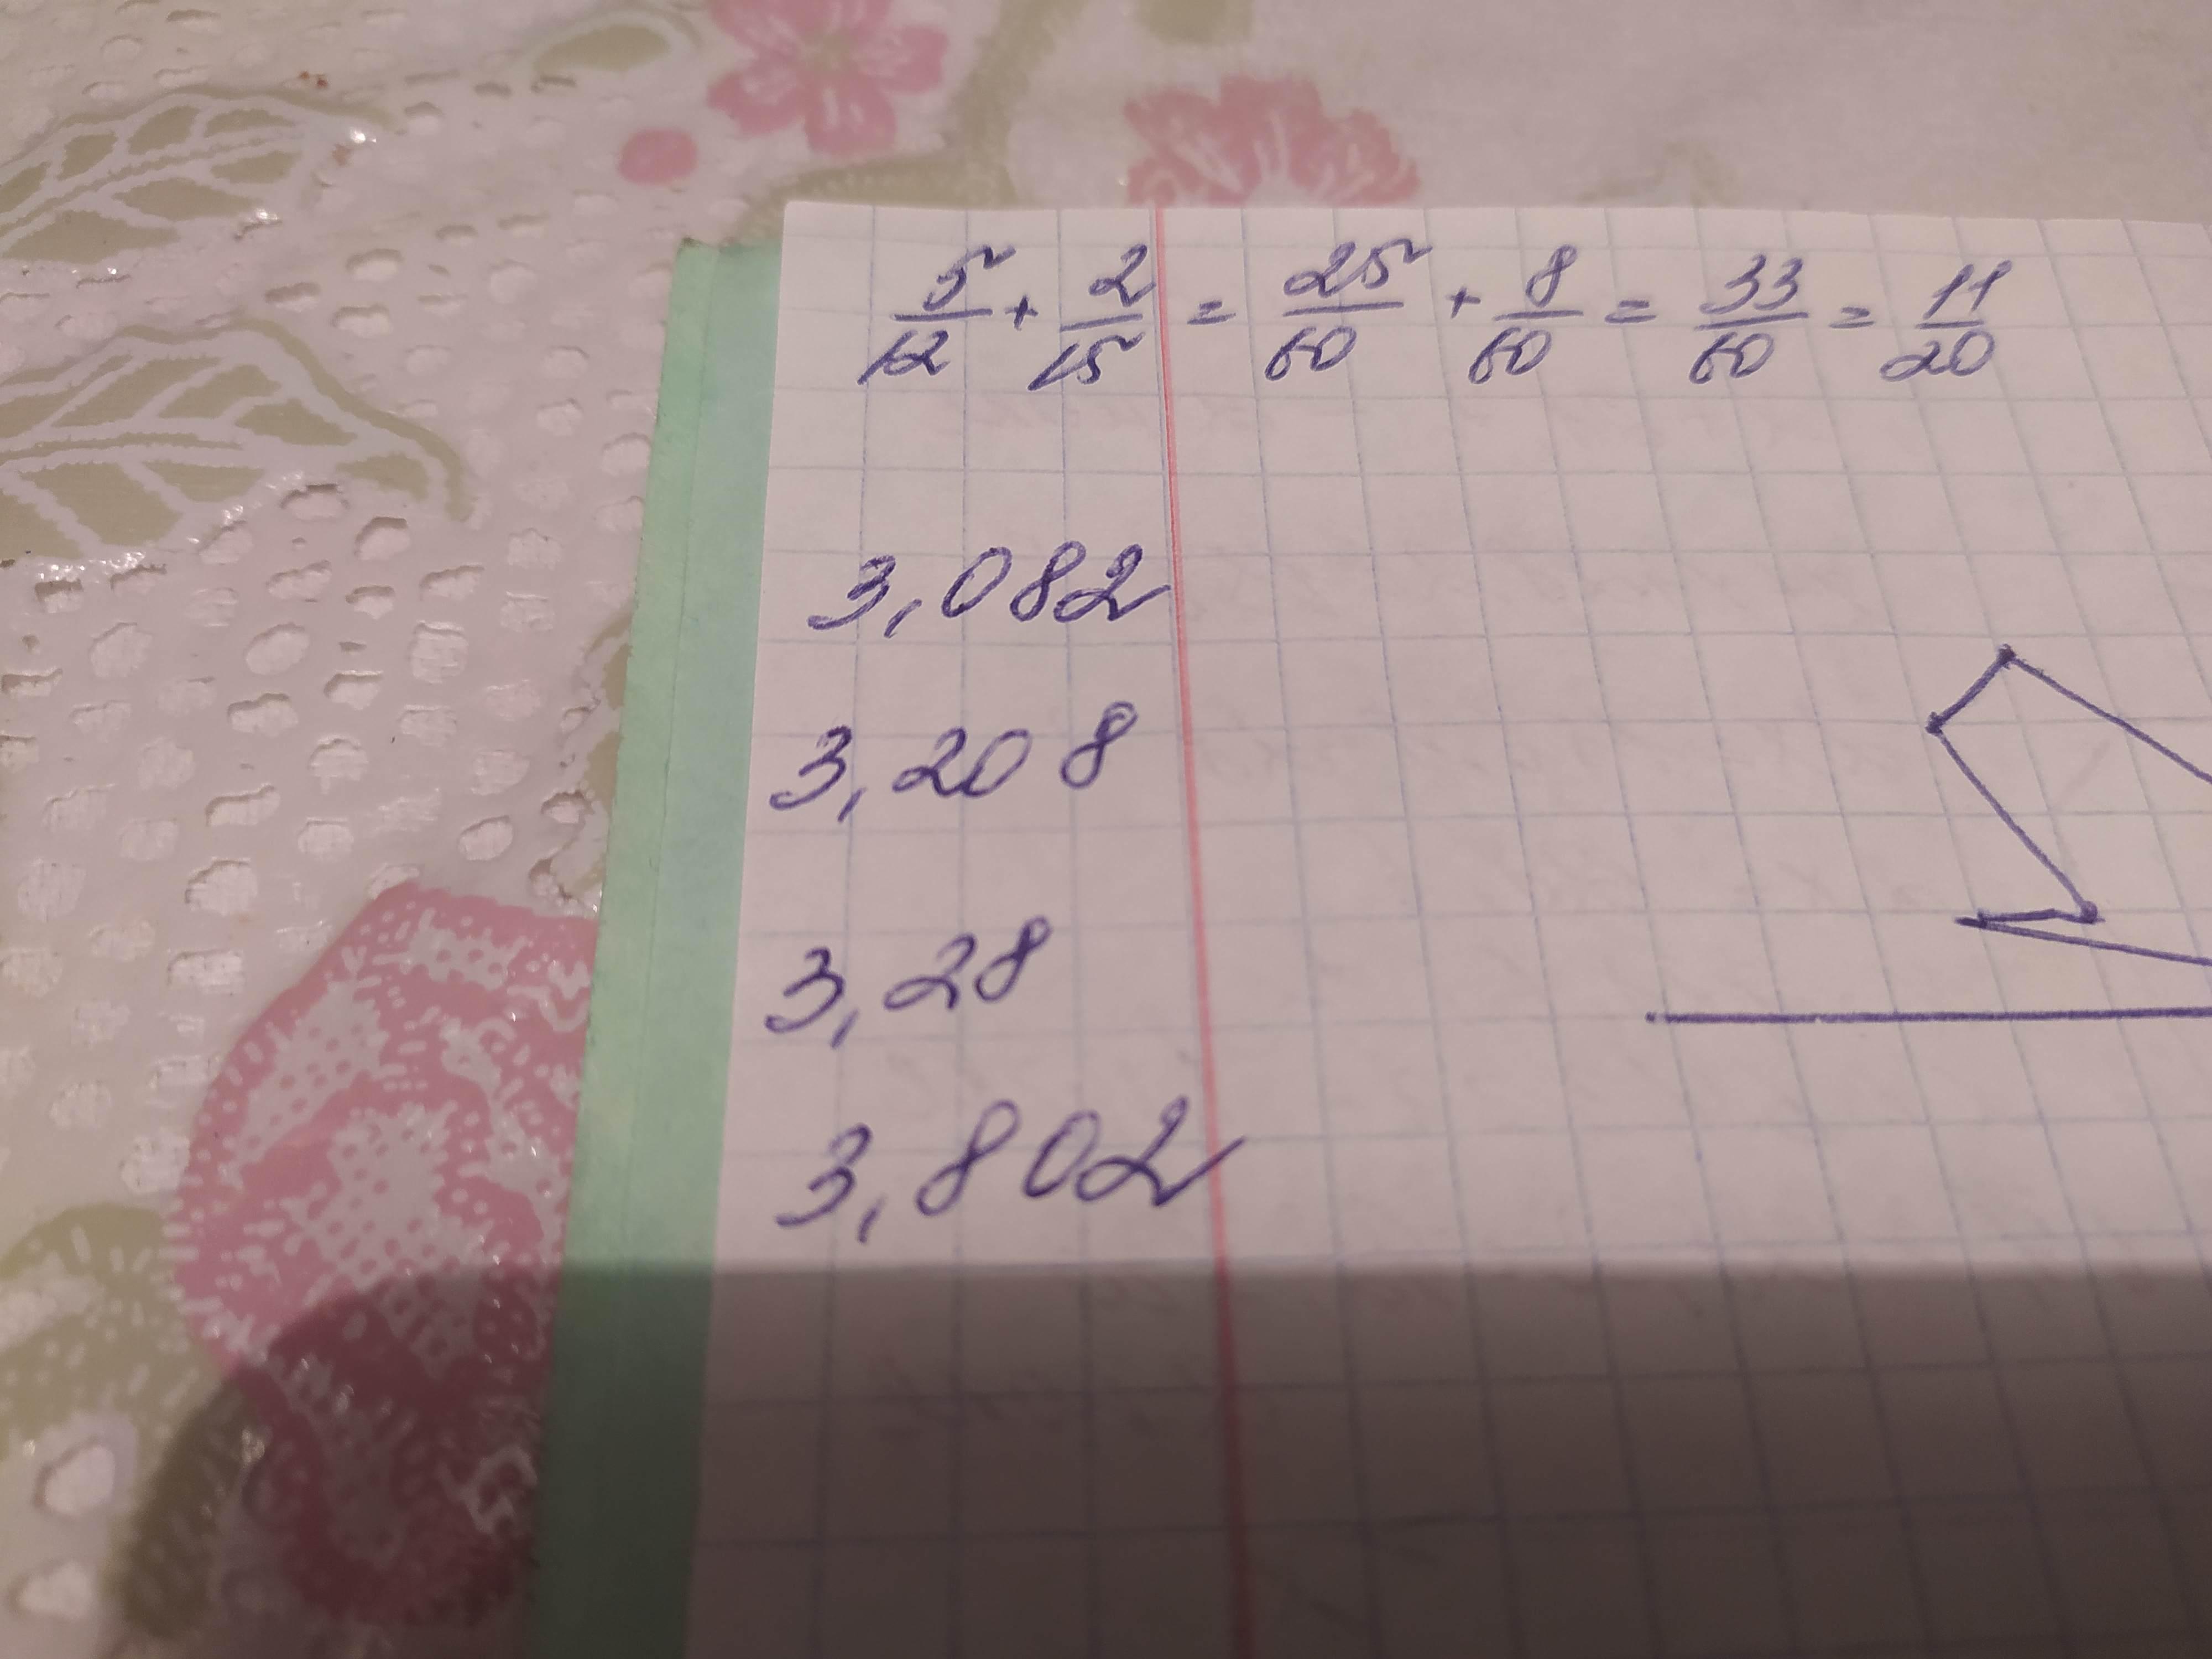 5/12 + 2/15 = 25/60 + 8/60 = 33/60 = 11/20
3,082
3,208
3,28
3,802